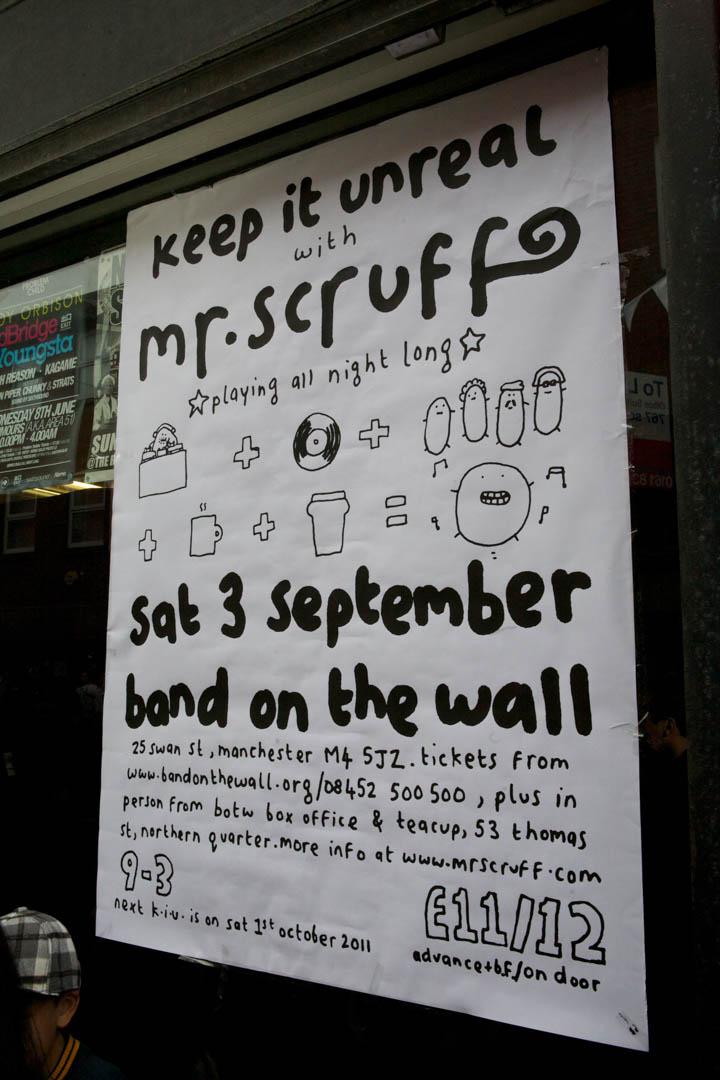 keep it unreal
with
mr.scruff
playing all night long
sat 3 september
band on the wall
25 swan st, manchester M4 5JZ. tickets from
www.bandonthewall.org/08452 500 500, plus in
person from botw box office & teacup, 53 thomas
st, northern quarter. more info at www.mrscruff.com
9-3
next k.i.u. is on sat 1st october 2011
£11/12
advance+b.f./on door
OY ORBISON
dBridge
Youngsta
H REASON · KAGAME
N PIPER CHUNKY & STRATS
DNESDAY 8TH JUNE
4.00AM
SUN
@THE
To L
767